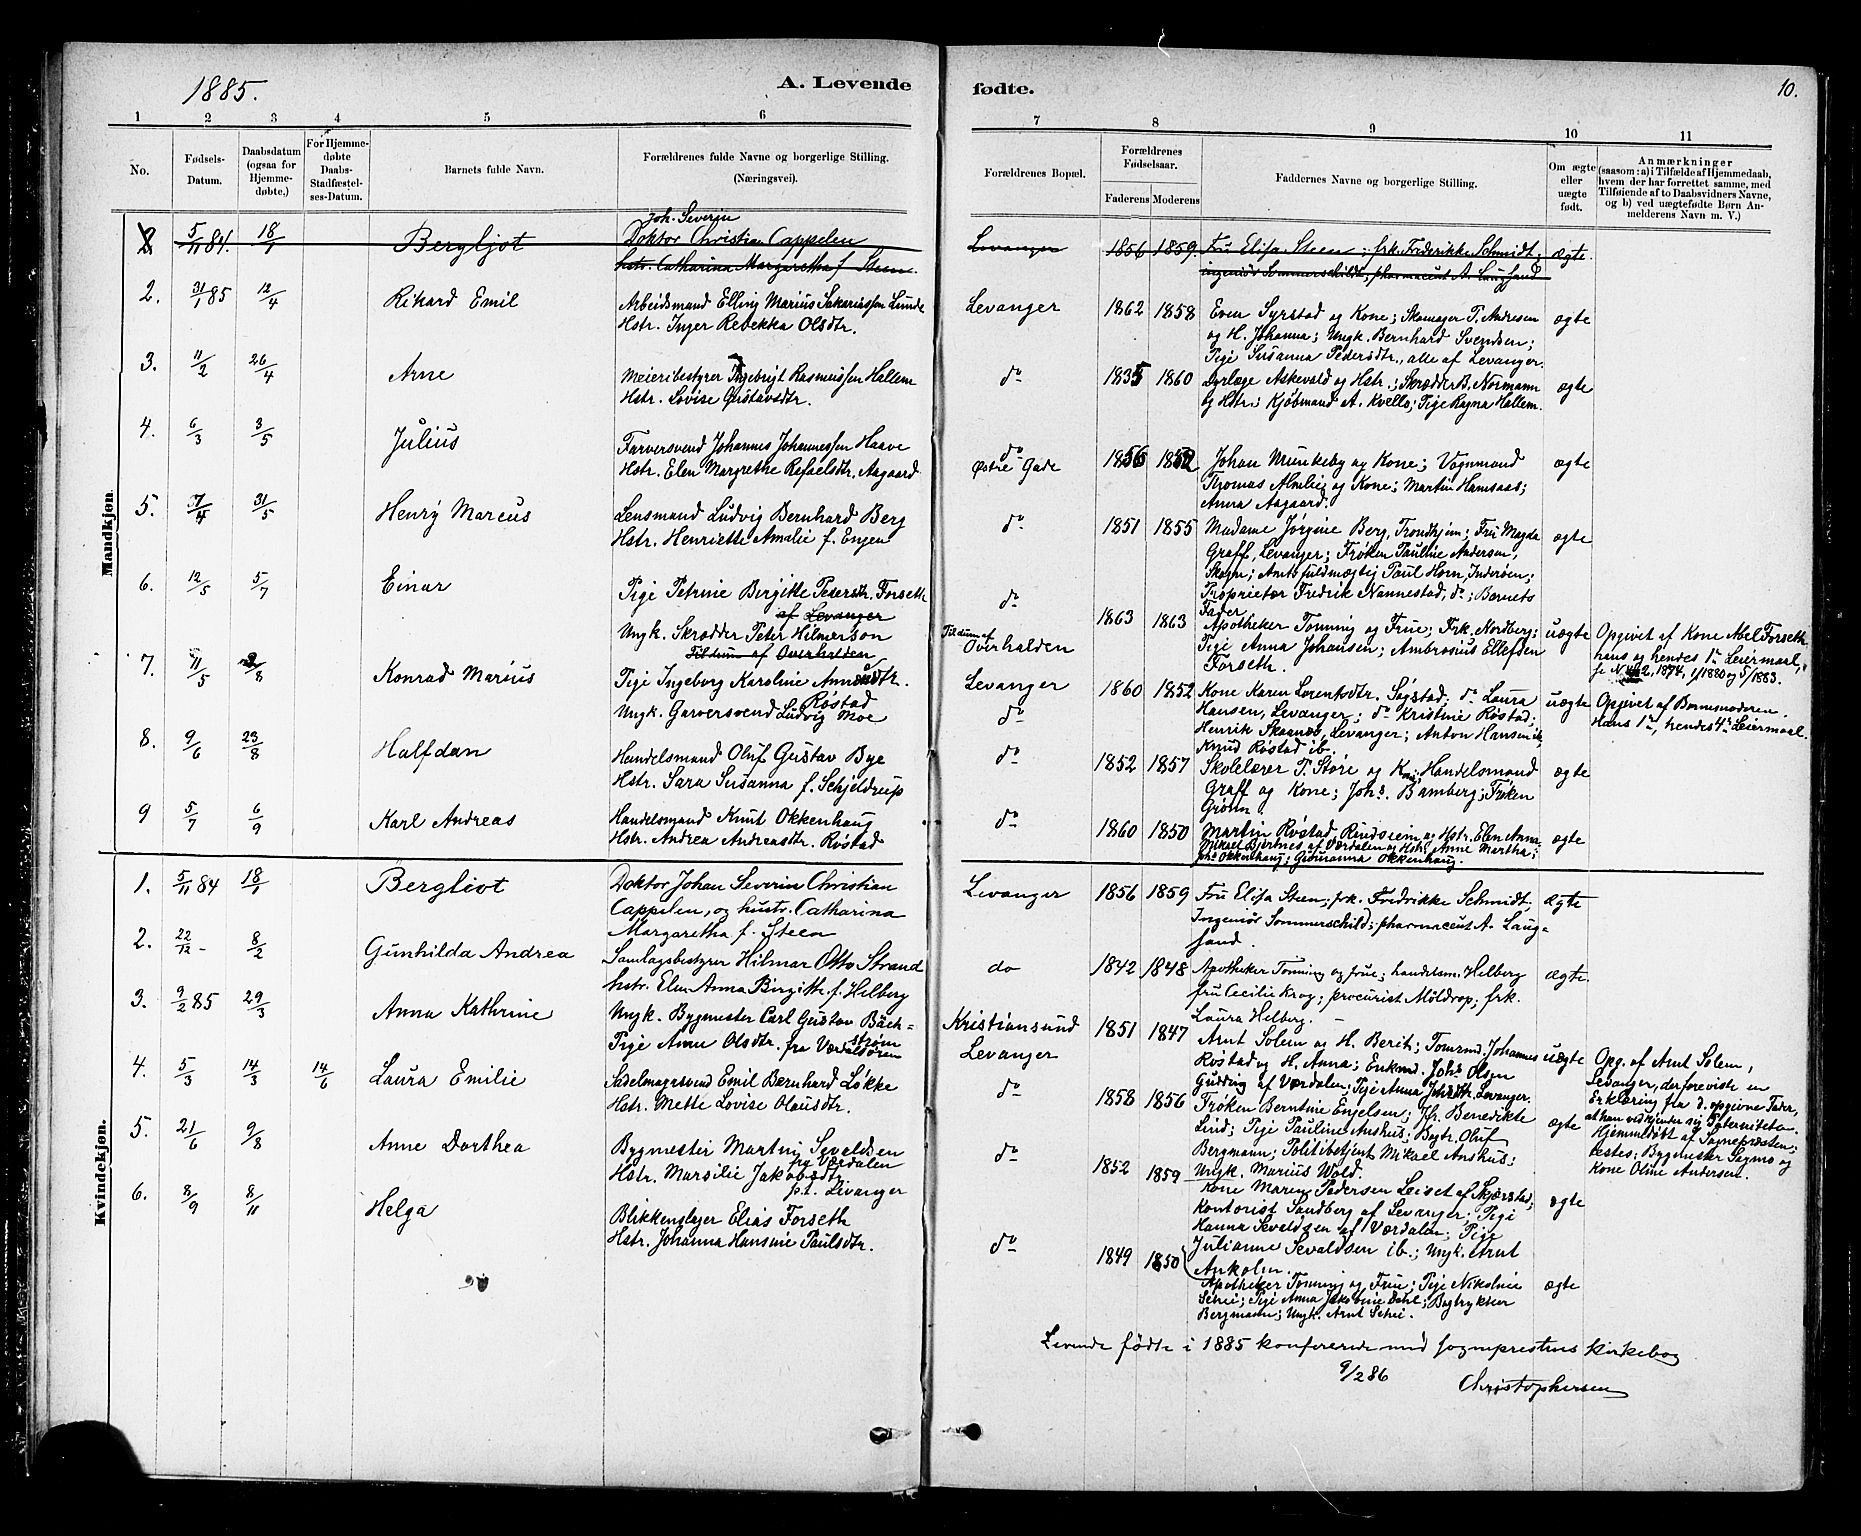 1885.
A. Levende
fødte.
10.
1 2 3 4 5 6
7 8 9 10 11
No.
Fødsels-
Datum.
Daabsdatum
(ogsaa for
Hjemme-
døbte,)
For Hjemme-
døbte
Daabs-
Stadfæstel-
ses-Datum.
Barnets fulde Navn.
Forældrenes fulde Navne og borgerlige Stilling.
(Næringsvei).
Forældrenes Bopæl.
Forældrenes
Fødselsaar.
Faderens Moderens
Faddernes Navne og borgerlige Stilling.
Om ægte
eller
uægte
født.
Anmærkninger
(saasom: a) i Tilfælde af Hjemmedaab,
hvem der har forrettet samme, med
Tilføiende af to Daabsvidners Navne,
og b) ved uægtefødte Børn An-
melderens Navn m. V.)
Mandkjøn.
5/11 84. 18/1 Bergljot
Joh. Severin
Doktor Christian Cappelen
hstr. Catharina Margaretha f. Steen
Levanger 1856 1859.
Fru Elisa Steen; frk. Frederikke Schmidt;
ingeniør Sommerschildt; pharmaceut A. Laugsand
ægte.
2. 31/1 85 12/4 Rikard Emil
Arbeidsmand Elling Marius Sakariassen Lunde
Hstr. Inger Rebekka Olsdtr.
Levanger 1862 1858
Even Syrstad og Kone; Skomager P. Andresen
og H. Johanna; Ungk. Bernhard Svendsen;
Pige Susanna Pedersdtr., alle af Levanger.
ægte
3. 11/2 26/4 Arne
Meieribestyrer Ingebrigt Rasmussen Hallem
Hstr. Lovise Gustavsdtr.
do 1835 1860
Dyrlæge Askevold og Hstr.; Skrædder B. Normann
og Hstr.; Kjøbmand A. Kvello; Pige Ragna Hallem.
ægte
4. 6/3 3/5 Julius
Farversvend Johannes Johannessen Haave
Hstr. Elen Margrethe Refaelsdtr. Aagaard.
do
Østre Gade 1856 1852
Johan Munkeby og Kone; Vognmand
Thomas Almlig og Kone; Martin Hamsaas;
Anna Aagaard.
ægte
5. 7/4 31/5 Henry Marcus
Lensmand Ludvig Bernhard Berg
Hstr. Henriette Amalie f. Engen
do 1851 1855
Madame Jørgine Berg, Trondhjem; Fru Magda
Graff, Levanger; Frøken Pauline Andersen,
Skogn; Amtsfuldmægtig Paul Horn, Inderøen;
Proprietær Fredrik Nannestad, do; Barnets
Fader.
ægte
6. 12/5 5/7 Einar
Pige Petrine Birgitte Pedersdtr. Forseth
af Levanger
Ungk. Skrædder Peter Hilmerson
Tildum af Overhalden
do
Tildum af
Overhalden 1863 1863
Apotheker Tønning og Frue; Frk. Nordberg;
Pige Anna Johansen; Ambrosius Ellefsen
Forseth.
uægte
Opgivet af Kone Abel Forseth
hans og hendes 1te Leiermaal,
1874, 1/1880 og 5/1883.
7. 11/5 2/8 Konrad Marius
Pige Ingeborg Karoline Annasdtr.
Røstad
Ungk. Garversvend Ludvig Moe
Levanger
do 1860 1852
Kone Karen Lorentsdtr. Søgstad, do Laura
Hansen, Levanger; do Kristine Røstad;
Henrik Skaanes, Levanger; Anton Hansen ib,
Knud Røstad ib.
uægte
Opgivet af Barnemoderen.
Hans 1te, hendes 4de Leiermaal.
8. 9/6 23/8 Halfdan
Handelsmand Oluf Gustav Bye
Hstr. Sara Susanna f. Schjeldrup
do 1852 1857
Skolelærer P. Støre og Kone; Handelsmand
Graff og Kone; Johs. Bamberg; Frøken
Grønn.
ægte
9 5/7 6/9 Karl Andreas
Handelsmand Knut Okkenhaug
Hstr. Andrea Andreasdtr. Røstad
do 1860 1850
Martin Røstad, Rindseim og Hstr. Elen Anna;
Mikael Bjertnes af Værdalen og Hstr. Anne Martha;
Johs Okkenhaug; Gurianna Okkenhaug.
ægte
Kvindekjøn.
1. 5/11 84 18/1 Bergliot
Doktor Johan Severin Christian
Cappelen, og hustr. Catharina
Margaretha f. Steen
Levanger 1856 1859
Fru Elisa Steen; frk. Fredrikke Schmidt;
Ingeniør Sommerschild; pharmaceut A. Laug-
sand.
ægte
2. 22/12 - 8/2 Gunhilda Andrea
Samlagsbestyrer Hilmar Otto Strand
hstr. Elen Anna Birgitte f. Helberg
do 1842 1848
Apotheker Tønning og frue; handelsm. Helberg
fru Cecilie Krog; procurist Möldrop; frk.
Laura Helberg. —
ægte.
3. 9/2 85 29/3 Anna Kathrine
Ungk. Bygmester Carl Gustav Bäck-
strøm
Pige Anne Olsdtr. fra Værdalsøren
Kristiansund
Levanger 1851 1847
Arnt Solem og H. Berit; Tømmd. Johannes
Røstad og H. Anna; Enkemd. Johs Olsen
Gudding af Værdalen; Pige Anna Johsdtr. Levanger.
uægte
Opg. af Arnt Solem,
Levanger, der foreviste en
Erklæring fra d. opgivne Fader,
at han vedkjender sig Paterniteten.
4. 5/3 14/3 14/6 Laura Emilie
Sadelmagersvend Emil Bernhard Løkke
Hstr. Mette Lovise Olausdtr.
do 1858 1856
Frøken Berntine Engelsen; Fr. Benedikte
Lind; Pige Pauline Aushus; Bogtr. Oluf
Bergmann; Politibetjent Mikael Aushus;
Ungk. Marius Wold.
ægte
Hjemmedøbt af Sognepræsten;
testes; Bygmester Sagmo og
Kone Oline Andersen.
5. 21/6 9/8 Anne Dorthea
Bygmester Martin Sevaldsen
fra Værdalen
Hstr. Marsilie Jakobsdtr.
p.t. Levanger
do 1852 1859
Kone Maren Pedersen Leiset af Skjørstad;
Kontorist Sandberg af Levanger; Pige
Hanna Sevaldsen af Værdalen; Pige
Julianne Sevaldsen ib.; Ungk. Arnt
Aukolm.
ægte
6. 8/9 8/11 Helga
Blikkenslager Elias Forseth
Hstr. Johanna Hansine Paulsdtr.
do 1849 1850
Apotheker Tønning og Frue; Pige Nikoline
Setrei; Pige Anna Jakobine Dahl; Bogtrykker
Bergmann; Ungk. Arnt Setrei.
ægte
Levende fødte i 1885 konfererede med sognprestens kirkebog
9/2 86
Christophersen